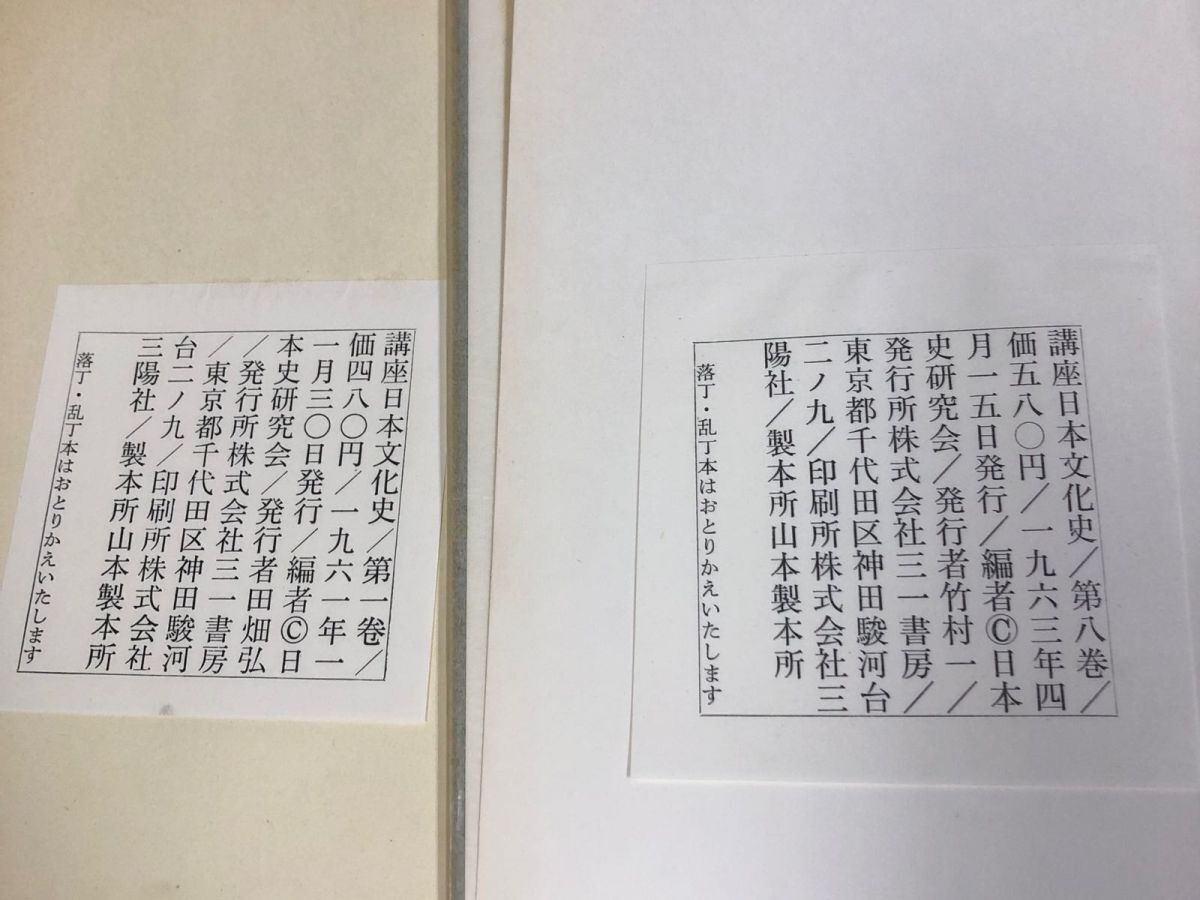 講座日本文化史／第一巻／
価四八〇円／一九六一年一
一月三〇日発行／編者Ⓒ日
本史研究会／発行者田畑弘
／発行所株式会社三一書房
／東京都千代田区神田駿河
台二ノ九／印刷所株式会社
三陽社／製本所山本製本所
落丁・乱丁本はおとりかえいたします
講座日本文化史／第八巻／
価五八〇円／一九六三年四
月一五日発行／編者Ⓒ日本
史研究会／発行者竹村一／
発行所株式会社三一書房／
東京都千代田区神田駿河台
二ノ九／印刷所株式会社三
陽社／製本所山本製本所
落丁・乱丁本はおとりかえいたします